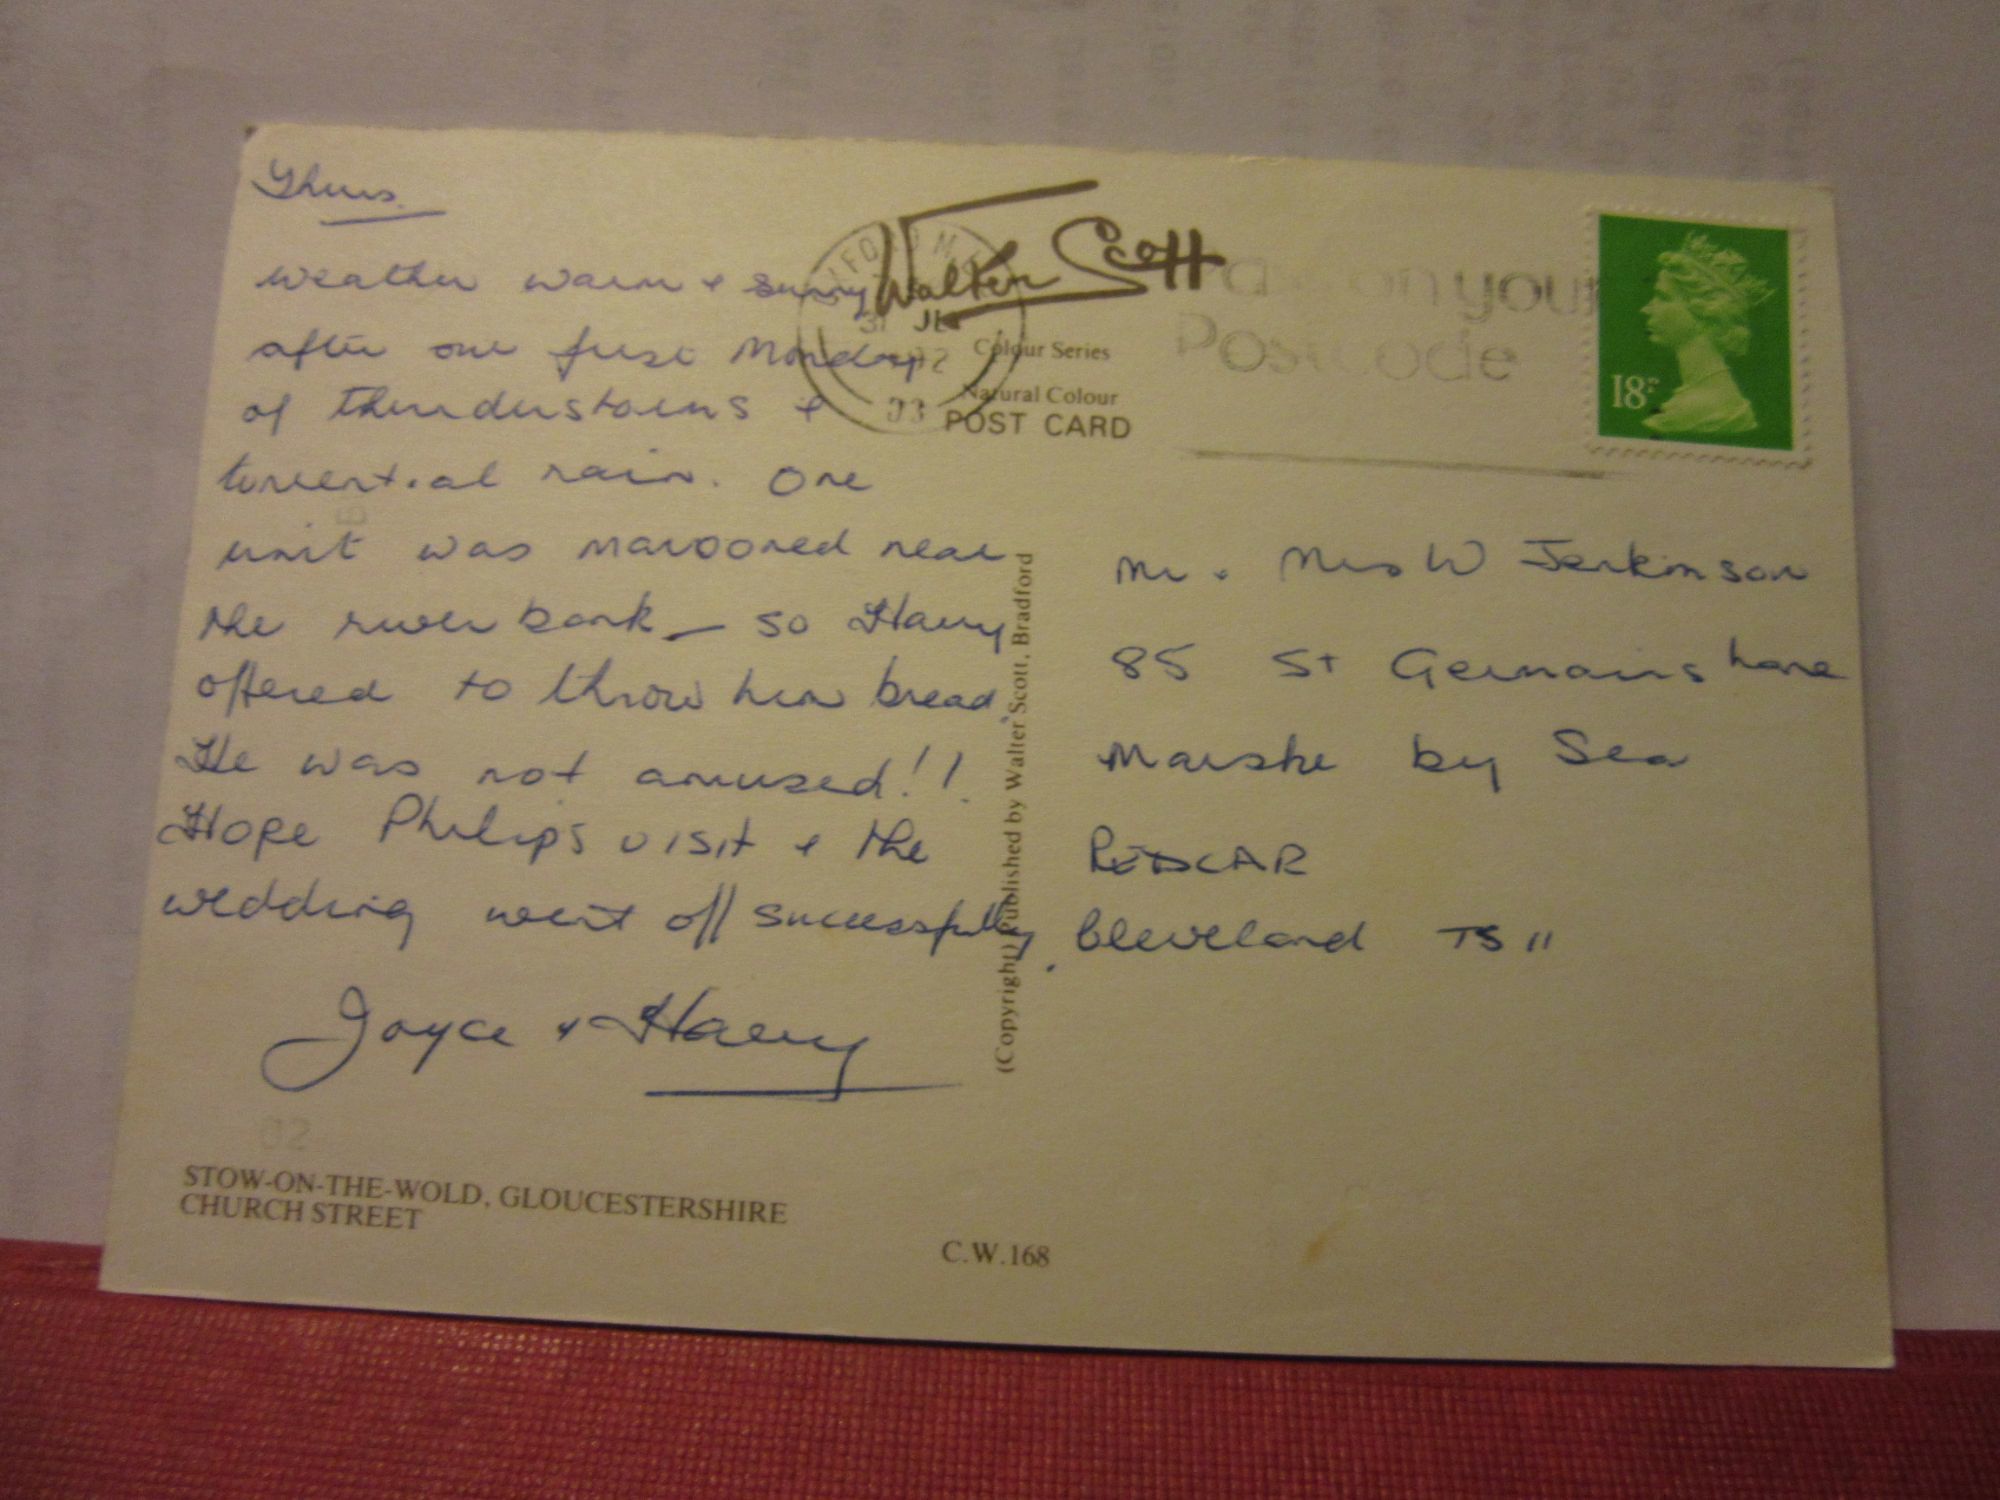 Thurs.
Weather warm + sunny
after our first Monday
of thunderstorms +
torrential rain. One
unit was marooned near
the river bank — so Harry
offered to throw him bread.
He was not amused!!
Hope Philips visit + the
wedding went off successfully.
Joyce + Harry
STOW-ON-THE-WOLD, GLOUCESTERSHIRE
CHURCH STREET
C.W.168
Walter Scott
Colour Series
Natural Colour
POST CARD
31 JL
on your
Postcode
18P
(Copyright) Published by Walter Scott, Bradford
Mr. Mrs W Jenkinson
85 St Germains Lane
Marske by Sea
REDCAR
Cleveland TS11